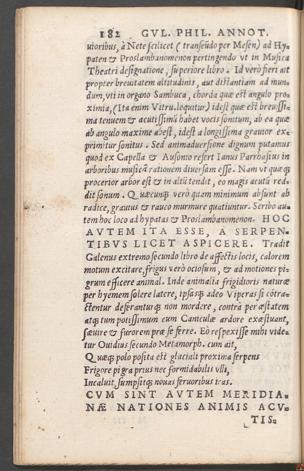 182 GVL. PHIL. ANNOT.
uioribus, à Nete scilicet (transeũdo per Mesen) ad Hy-
paten & Proslambanomenon pertingendo vt in Musica
Theatri designatione, superiore libro. Id verò fieri ait
propter breuitatem altitudinis, aut distantiam ad mun-
dum, vti in organo Sambuca, chorda quæ est angulo pro-
ximia, (Ita enim Vitru. loquitur) idest quæ est breuissi-
ma tenuem & acutissimũ habet vocis sonitum, ab ea quæ
ab angulo maxime abest, idest a longissima grauior ex-
primitur sonitus. Sed animaduersione dignum putamus
quod ex Capella & Ausonio refert Ianus Parrhasius in
arboribus musicẽ rationem diuersam esse. Nam vt quæq;
procerior arbor est & in altũ tendit, eo magis acutũ red-
dit sonum. Quæcunq; verò quam minimum absunt ab
radice, grauius & rauco murmure quatiuntur. Scribo au-
tem hoc loco ad hypatas & Proslambanomenon. HOC
AVTEM ITA ESSE, A SERPEN-
TIBVS LICET ASPICERE. Tradit
Galenus extremo secundo libro de affectis locis, calorem
motum excitare, frigus verò ociosum, & ad motiones pi-
grum efficere animal. Inde animalia frigidioris naturæ
per hyemem solere latere, ipsasq; adeo Viperas si cõtra-
ctentur deseranturq; non mordere, contra per æstatem
atq; tum potissimum cum Caniculæ ardore exæstuant,
sæuire & furorem præ se ferre. Eò respexisse mihi vide-
tur Ouidius secundo Metamorph. cum ait,
Quæq; polo posita est glaciali proxima serpens
Frigore pigra prius nec formidabilis vlli,
Incaluit, sumpsitq; nouas feruoribus iras.
CVM SINT AVTEM MERIDIA-
NÆ NATIONES ANIMIS ACV-
TIS-